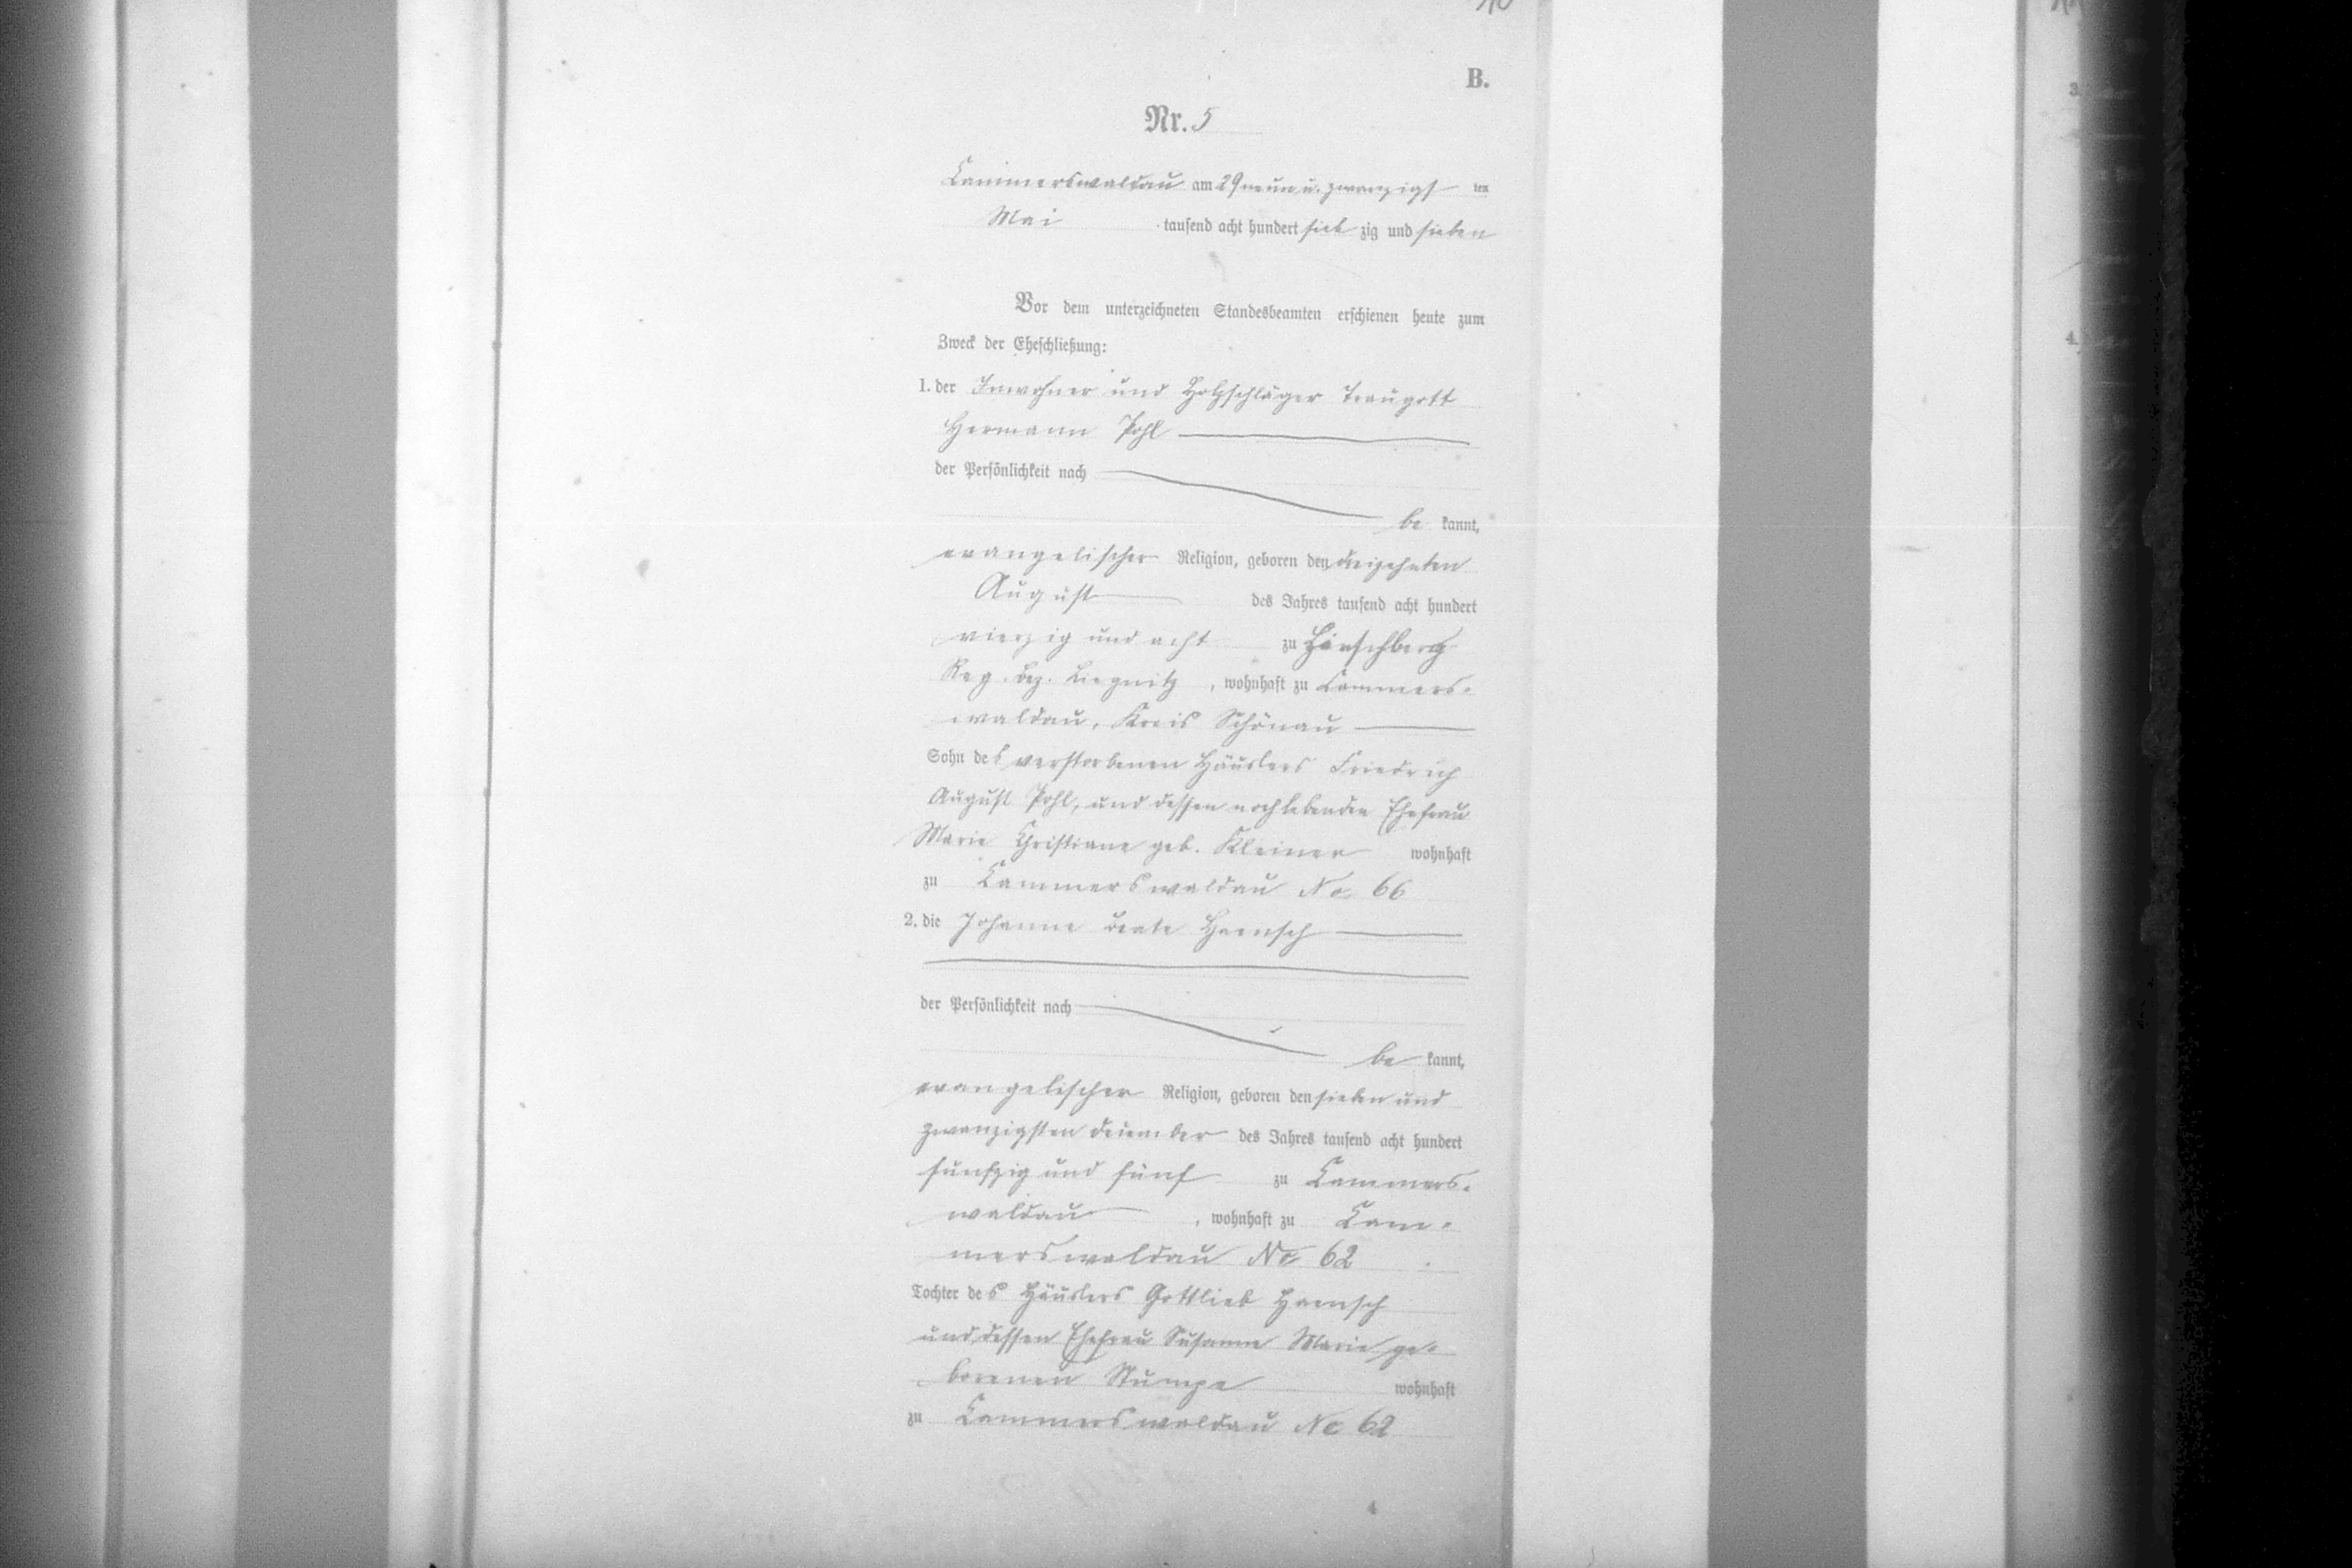 B.
Nr. 5
Cammerswaldau am 29 neun u. zwanzigsten
Mai tausend acht hundert siebzig und sieben
Vor dem unterzeichneten Standesbeamten erschienen heute zum
Zweck der Eheschließung:
1. der Inwohner und Holzschläger Traugott
Hermann Pohl
der Persönlichkeit nach
bekannt,
evangelischer Religion, geboren den dreizehnten
August des Jahres tausend acht hundert
vierzig und acht zu Hirschberg
Reg. Bez. Liegnitz, wohnhaft zu Cammers-
waldau, Kreis Schönau
Sohn des verstorbenen Häuslers Friedrich
August Pohl, und dessen noch lebenden Ehefrau
Marie Christiane geb. Kleiner wohnhaft
zu Cammerswaldau No 66
2. die Johanne Beate Haensch
der Persönlichkeit nach
bekannt,
evangelischer Religion, geboren den sieben und
zwanzigsten December des Jahres tausend acht hundert
fünfzig und fünf zu Cammers-
waldau, wohnhaft zu Cam-
merswaldau No 62
Tochter des Häuslers Gottlieb Haensch
und dessen Ehefrau Susanne Marie ge-
borenen Stumpe wohnhaft
zu Cammerswaldau No 62
4
3.
4.